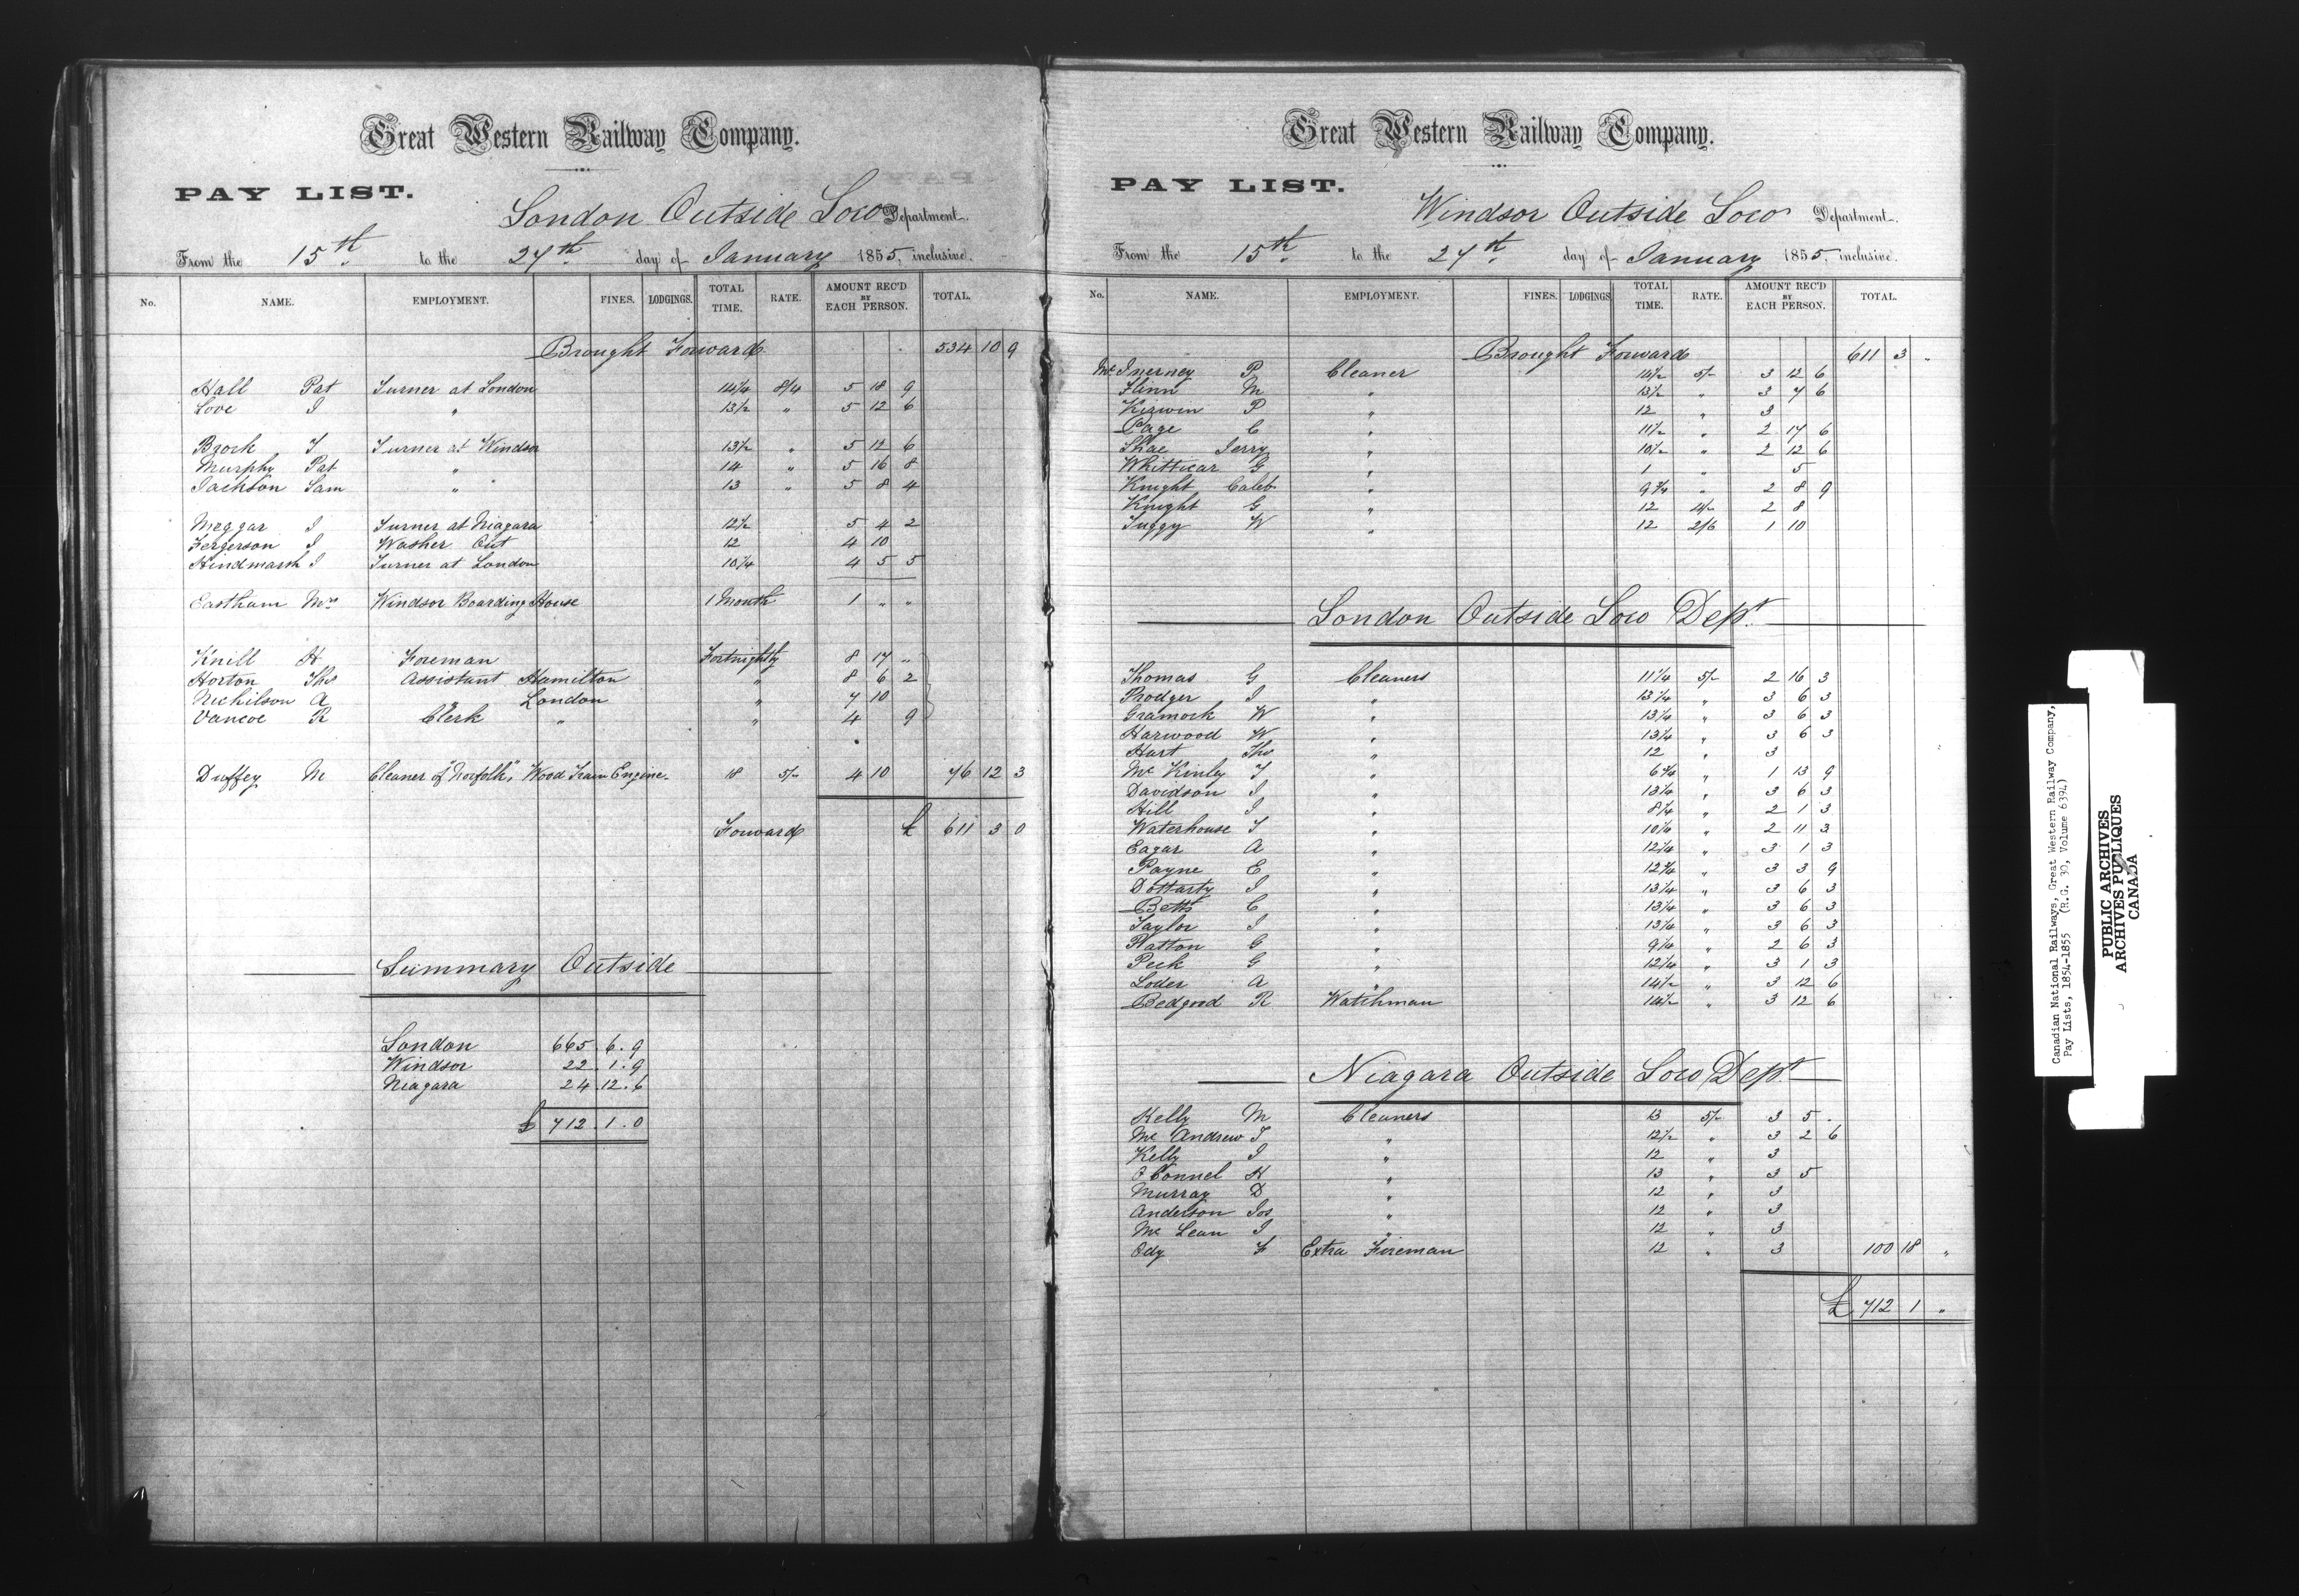 Great Western Railway Company.
PAY LIST.
London Outside Loco Department.
From the 15th to the 27th day of January 1855, inclusive.
No. NAME. EMPLOYMENT. FINES. LODGINGS. TOTAL TIME. RATE. AMOUNT REC'D BY EACH PERSON. TOTAL.
Brought Forward 534 10 9
Hall Pat Turner at London 14 1/4 8/4 5 18 9
Love J " 13 1/2 " 5 12 6
Brock T Turner at Windsor 13 1/2 " 5 12 6
Murphy Pat " 14 " 5 16 8
Jackson Sam " 13 " 5 8 4
Meggar J Turner at Niagara 12 1/2 5 4 2
Fergerson J Washer Out 12 4 10
Hindmarsh J Turner at London 10 1/4 4 5 5
Eastham Mrs Windsor Boarding House 1 Month 1 " "
Knill H Foreman Fortnightly 8 17 "
Horton Thos Assistant Hamilton " 8 6 2
Nichilson A " London " 7 10
Vancoe R Clerk " " 4 9
Duffey M Cleaner of "Norfolk", Wood Train Engine 18 5/- 4 10 76 12 3
Forward £ 611 3 0
Summary Outside
London 665.6.9
Windsor 22.1.9
Niagara 24.12.6
£ 712.1.0
Great Western Railway Company.
PAY LIST.
Windsor Outside Loco Department.
From the 15th to the 27th day of January 1855, inclusive.
No. NAME. EMPLOYMENT. FINES. LODGINGS TOTAL TIME. RATE. AMOUNT REC'D BY EACH PERSON. TOTAL.
Brought Forward 611 3 "
Mc Inerney P Cleaner 14 1/2 5/- 3 12 6
Flinn M " 13 1/2 " 3 7 6
Kigwin P " 12 " 3
Page C " 11 1/2 " 2 17 6
Shae Jerry " 10 1/2 " 2 12 6
Whitticar G " 1 " 5
Knight Caleb " 9 3/4 " 2 8 9
Knight G " 12 4/- 2 8
Tuggy W " 12 2/6 1 10
London Outside Loco Dept.
Thomas G Cleaners 11 1/4 5/- 2 16 3
Prodger J " 13 1/4 " 3 6 3
Gramock W " 13 1/4 " 3 6 3
Harwood W " 13 1/4 " 3 6 3
Hart Thos " 12 " 3
Mc Kinley T " 6 3/4 " 1 13 9
Davidson J " 13 1/4 " 3 6 3
Hill J " 8 1/4 " 2 1 3
Waterhouse T " 10 1/4 " 2 11 3
Eagar A " 12 1/4 " 3 1 3
Payne E " 12 3/4 " 3 3 9
J " 13 1/4 " 3 6 3
Betts C " 13 1/4 " 3 6 3
Taylor J " 13 1/4 " 3 6 3
Watton G " 9 1/4 " 2 6 3
Peek G " 12 1/4 " 3 1 3
Loder A " 14 1/2 " 3 12 6
Bedgood R Watchman 14 1/2 " 3 12 6
Niagara Outside Loco Dept
Kelly M Cleaners 13 5/- 3 5 .
Mc Andrew T " 12 1/2 " 3 2 6
Kelly J " 12 " 3
O Connel H " 13 " 3 5
Murray D " 12 " 3
Anderson Jos " 12 " 3
Mc Lean J " 12 " 3
Ody F Extra Fireman 12 " 3 100 18 "
£ 712 1 "
Canadian National Railways, Great Western Railway Company,
Pay Lists, 1854-1855 (R.G. 30, Volume 6394)
PUBLIC ARCHIVES
ARCHIVES PUBLIQUES
CANADA